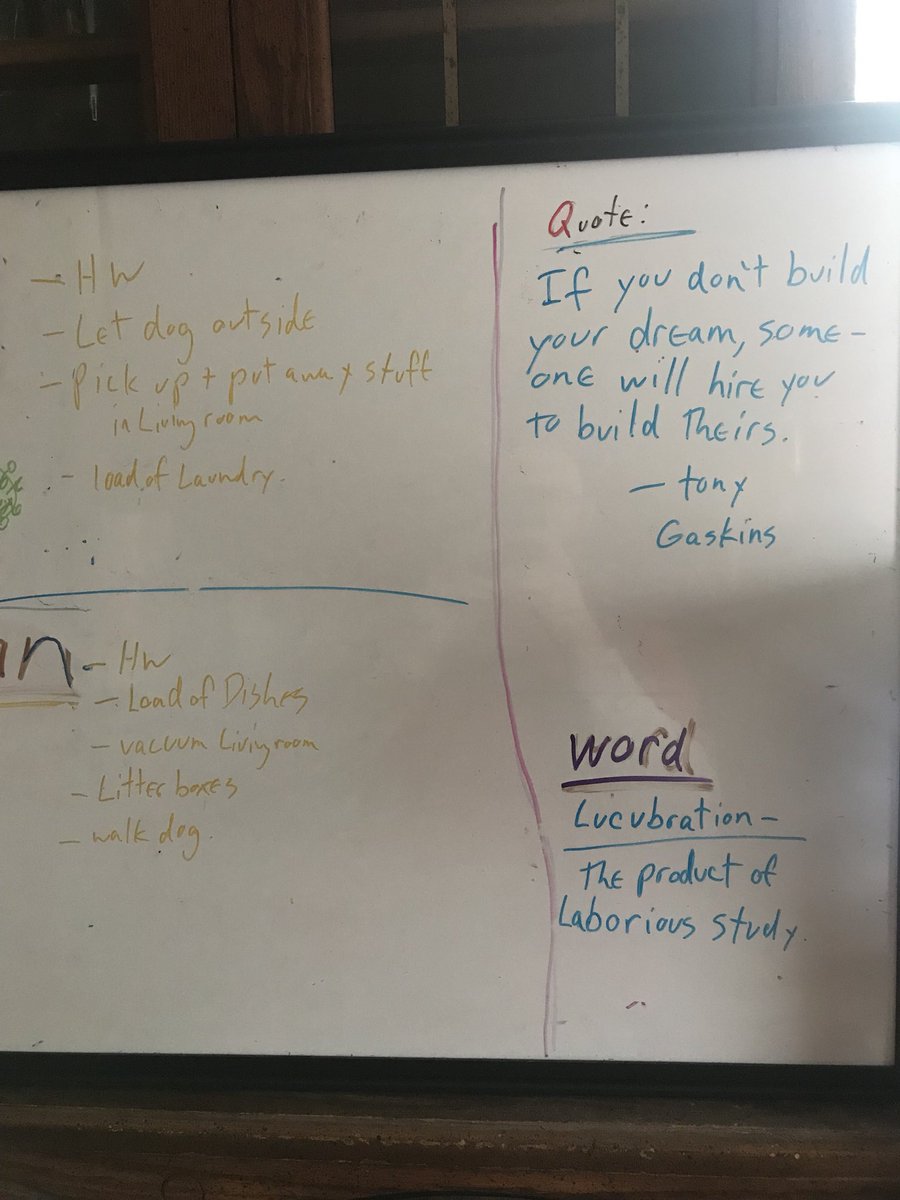 - HW
- Let dog outside
- Pick up + put away stuff
in Living room
- load of Laundry.
n - HW
- Load of Dishes
- vacuum Living room
- Litter boxes
- walk dog.
Quote:
If you don't build
your dream, some-
one will hire you
to build Theirs.
- tony
Gaskins
word
Lucubration -
The product of
Laborious study.